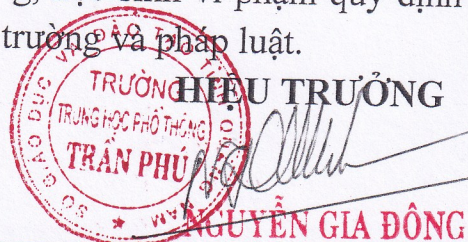 vi phạm quy định
trường và pháp luật.
HIỆU TRƯỞNG
SỞ GIÁO DỤC VÀ ĐÀO TẠO
TRƯỜNG
TRUNG HỌC PHỔ THÔNG
TRẦN PHÚ
NGUYỄN GIA ĐÔNG